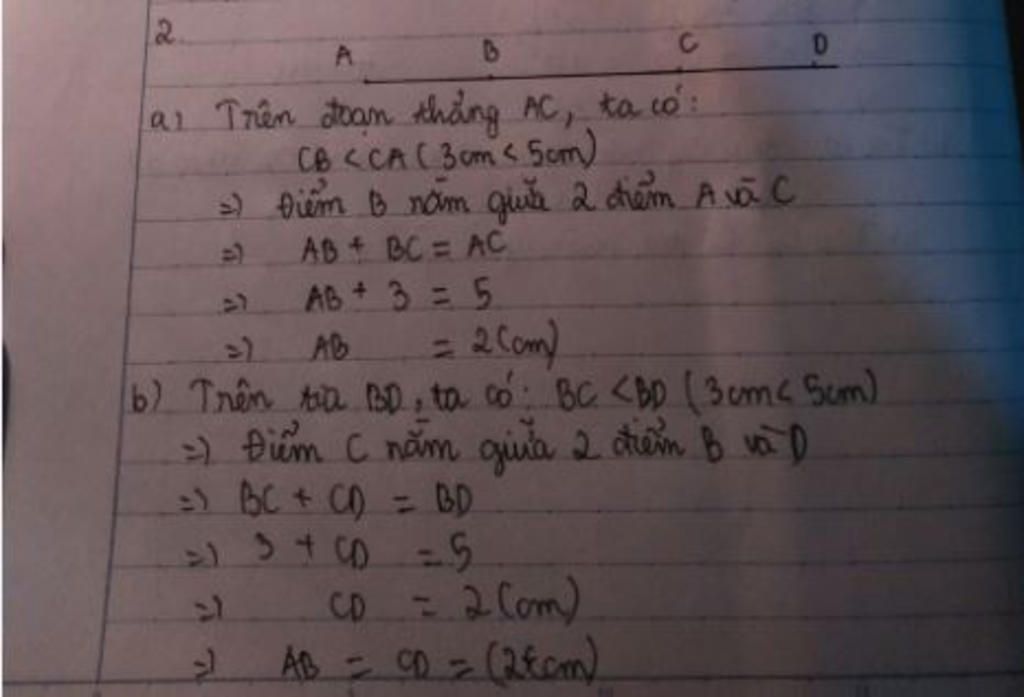 2.
A B C D
a) Trên đoạn thẳng AC, ta có:
CB < CA (3cm < 5cm)
=) Điểm B nằm giữa 2 điểm A và C
=) AB + BC = AC
=) AB + 3 = 5
=) AB = 2 (cm)
b) Trên tia BD, ta có: BC < BD (3cm < 5cm)
=) Điểm C nằm giữa 2 điểm B và D
=) BC + CD = BD
=) 3 + CD = 5
=) CD = 2 (cm)
=) AB = CD = (2 cm)